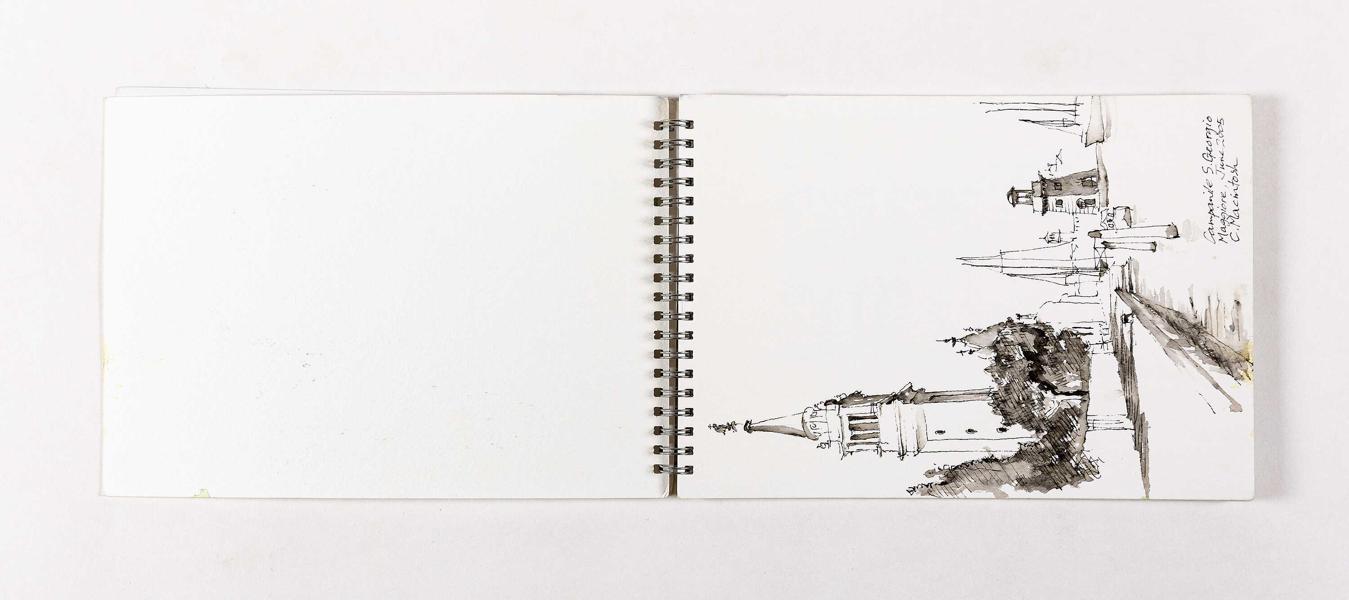 Campanile S. Georgio
Maggiore. June 2005
C. Macintosh